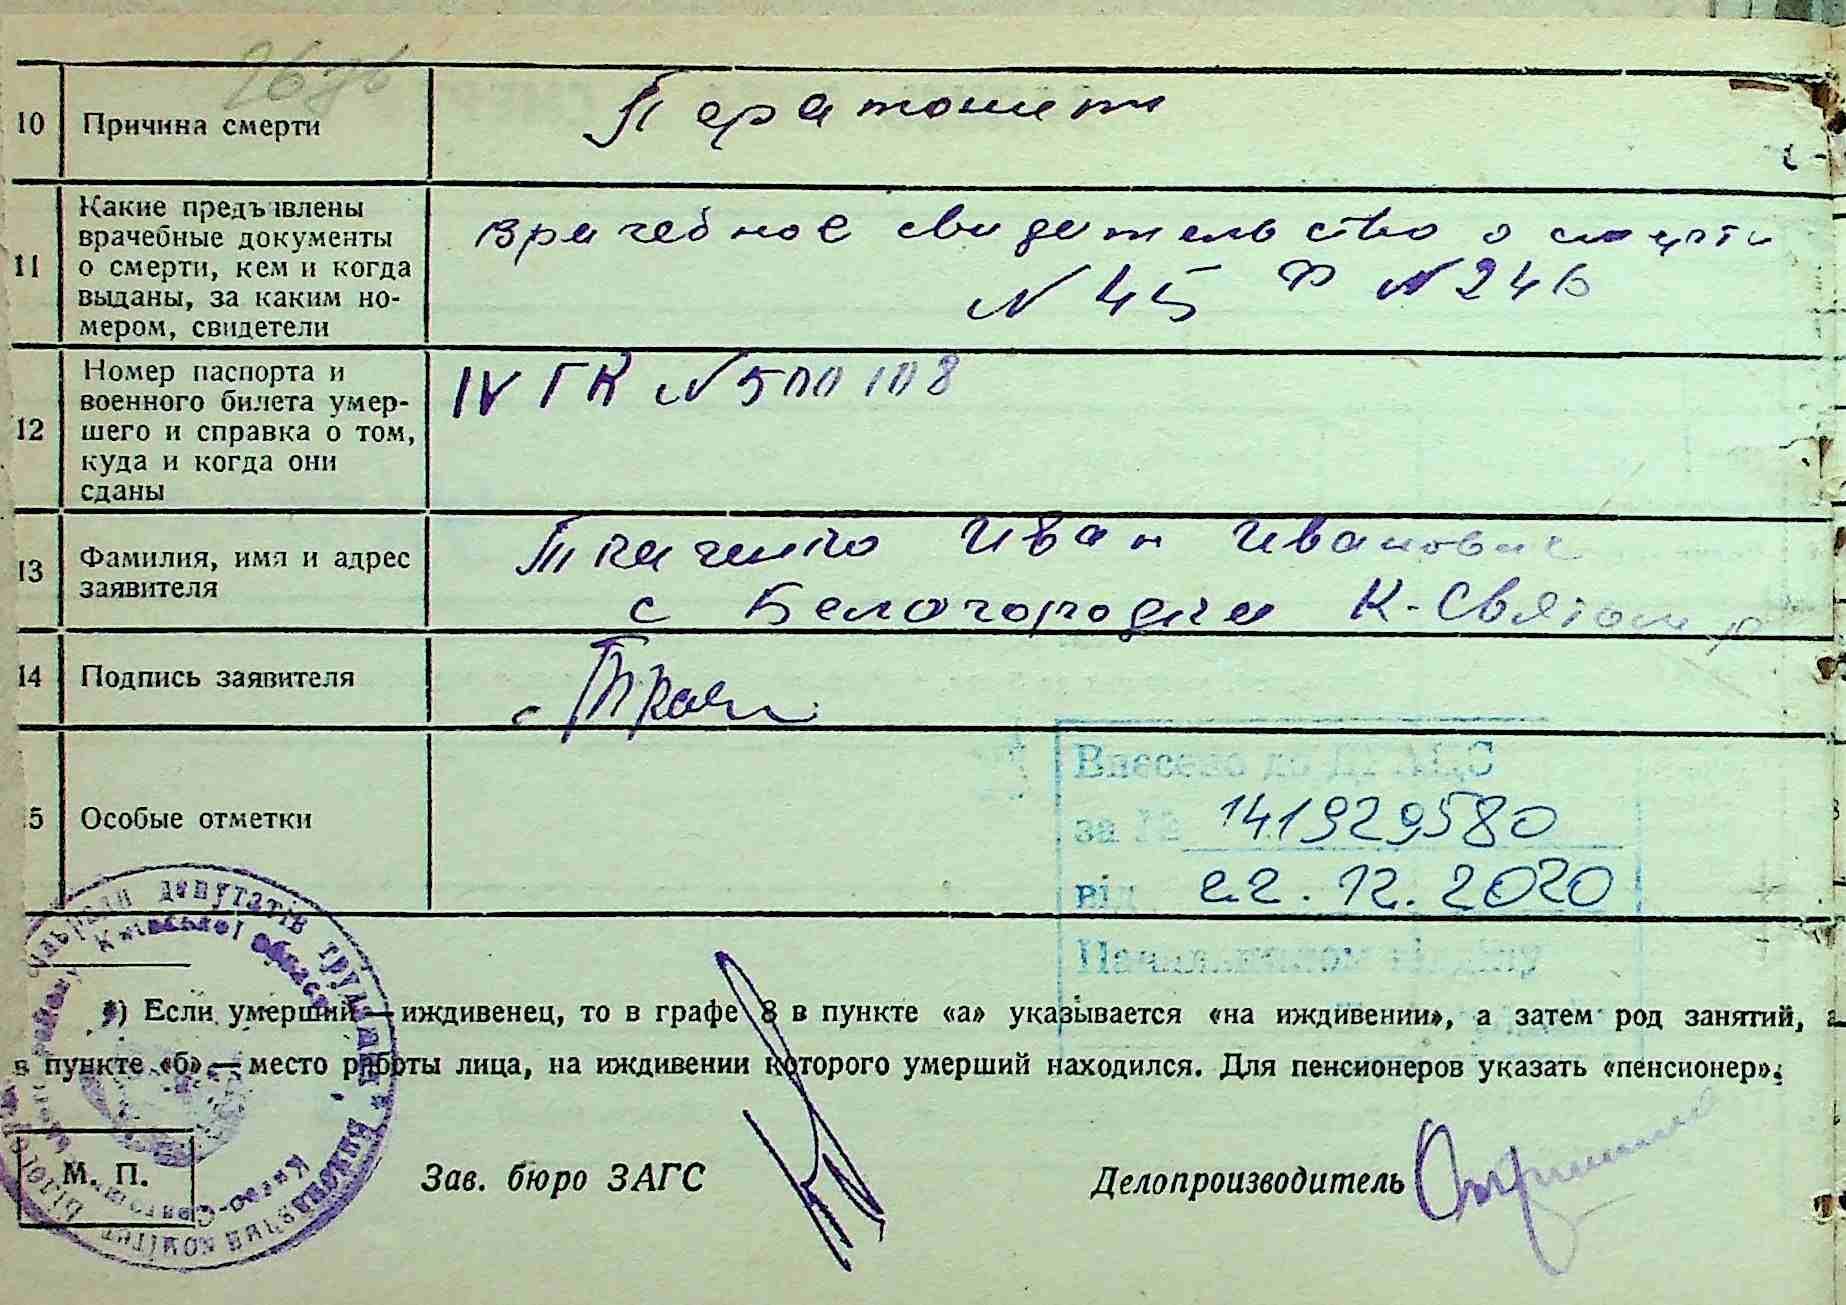 10 Причина смерти
Ператонит
11 Какие предъявлены
врачебные документы
о смерти, кем и когда
выданы, за каким но-
мером, свидетели
врачебное свидетельство о смерти
N 45 Ф N 246
12 Номер паспорта и
военного билета умер-
шего и справка о том,
куда и когда они
сданы
IV ГК N 500108
13 Фамилия, имя и адрес
заявителя
Ткаченко Иван Иванович
с Белогородки К-Святош р
14 Подпись заявителя
5 Особые отметки
Внесено до ДРАЦС
за № 141929580
від 22.12.2020
Начальником відділу
депутатів трудящих
Київської області
Києво-
виконавчий комітет
*) Если умерший — иждивенец, то в графе 8 в пункте «а» указывается «на иждивении», а затем род занятий, а
в пункте «б» — место работы лица, на иждивении которого умерший находился. Для пенсионеров указать «пенсионер».
М. П.
Зав. бюро ЗАГС
Делопроизводитель